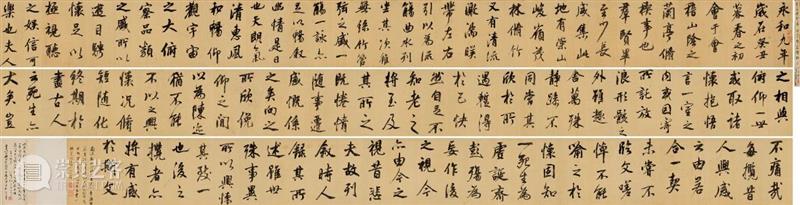 永和九年
歲在癸丑
暮春之初
會于會
稽山陰之
蘭亭脩
禊事也
群賢畢
至少長
咸集此
地有崇山
峻領茂
林脩竹
又有清流
激湍暎
帶左右
引以為流
觴曲水列
坐其次雖
無絲竹管
絃之盛一
觴一詠亦
足以暢敘
幽情是日
也天朗氣
清惠風
和暢仰
觀宇宙
之大俯
察品類
之盛所以
遊目騁
懷足以
極視聽
之娛信可
樂也夫人
之相與
俯仰一世
或取諸
懷抱悟
言一室之
內或因寄
所託放
浪形骸之
外雖趣
舍萬殊
靜躁不
同當其
欣於所
遇暫得
於己快
然自足不
知老之
將至及
其所之
既惓情
隨事遷
感慨係
之矣向之
所欣俛
仰之間
以為陳迹
猶不能
不以之興
懷況脩
短隨化
終期於
盡古人
云死生亦
大矣豈
不痛哉
每攬昔
人興感
之由若
合一契
未嘗不
臨文嗟
悼不能
喻之於
懷固知
一死生為
虛誕齊
彭殤為
妄作後
之視今
亦由今之
視昔悲
夫故列
敘時人
錄其所
述雖世
殊事異
所以興懷
其致一
也後之
攬者亦
將有感
於斯文
崇真艺客